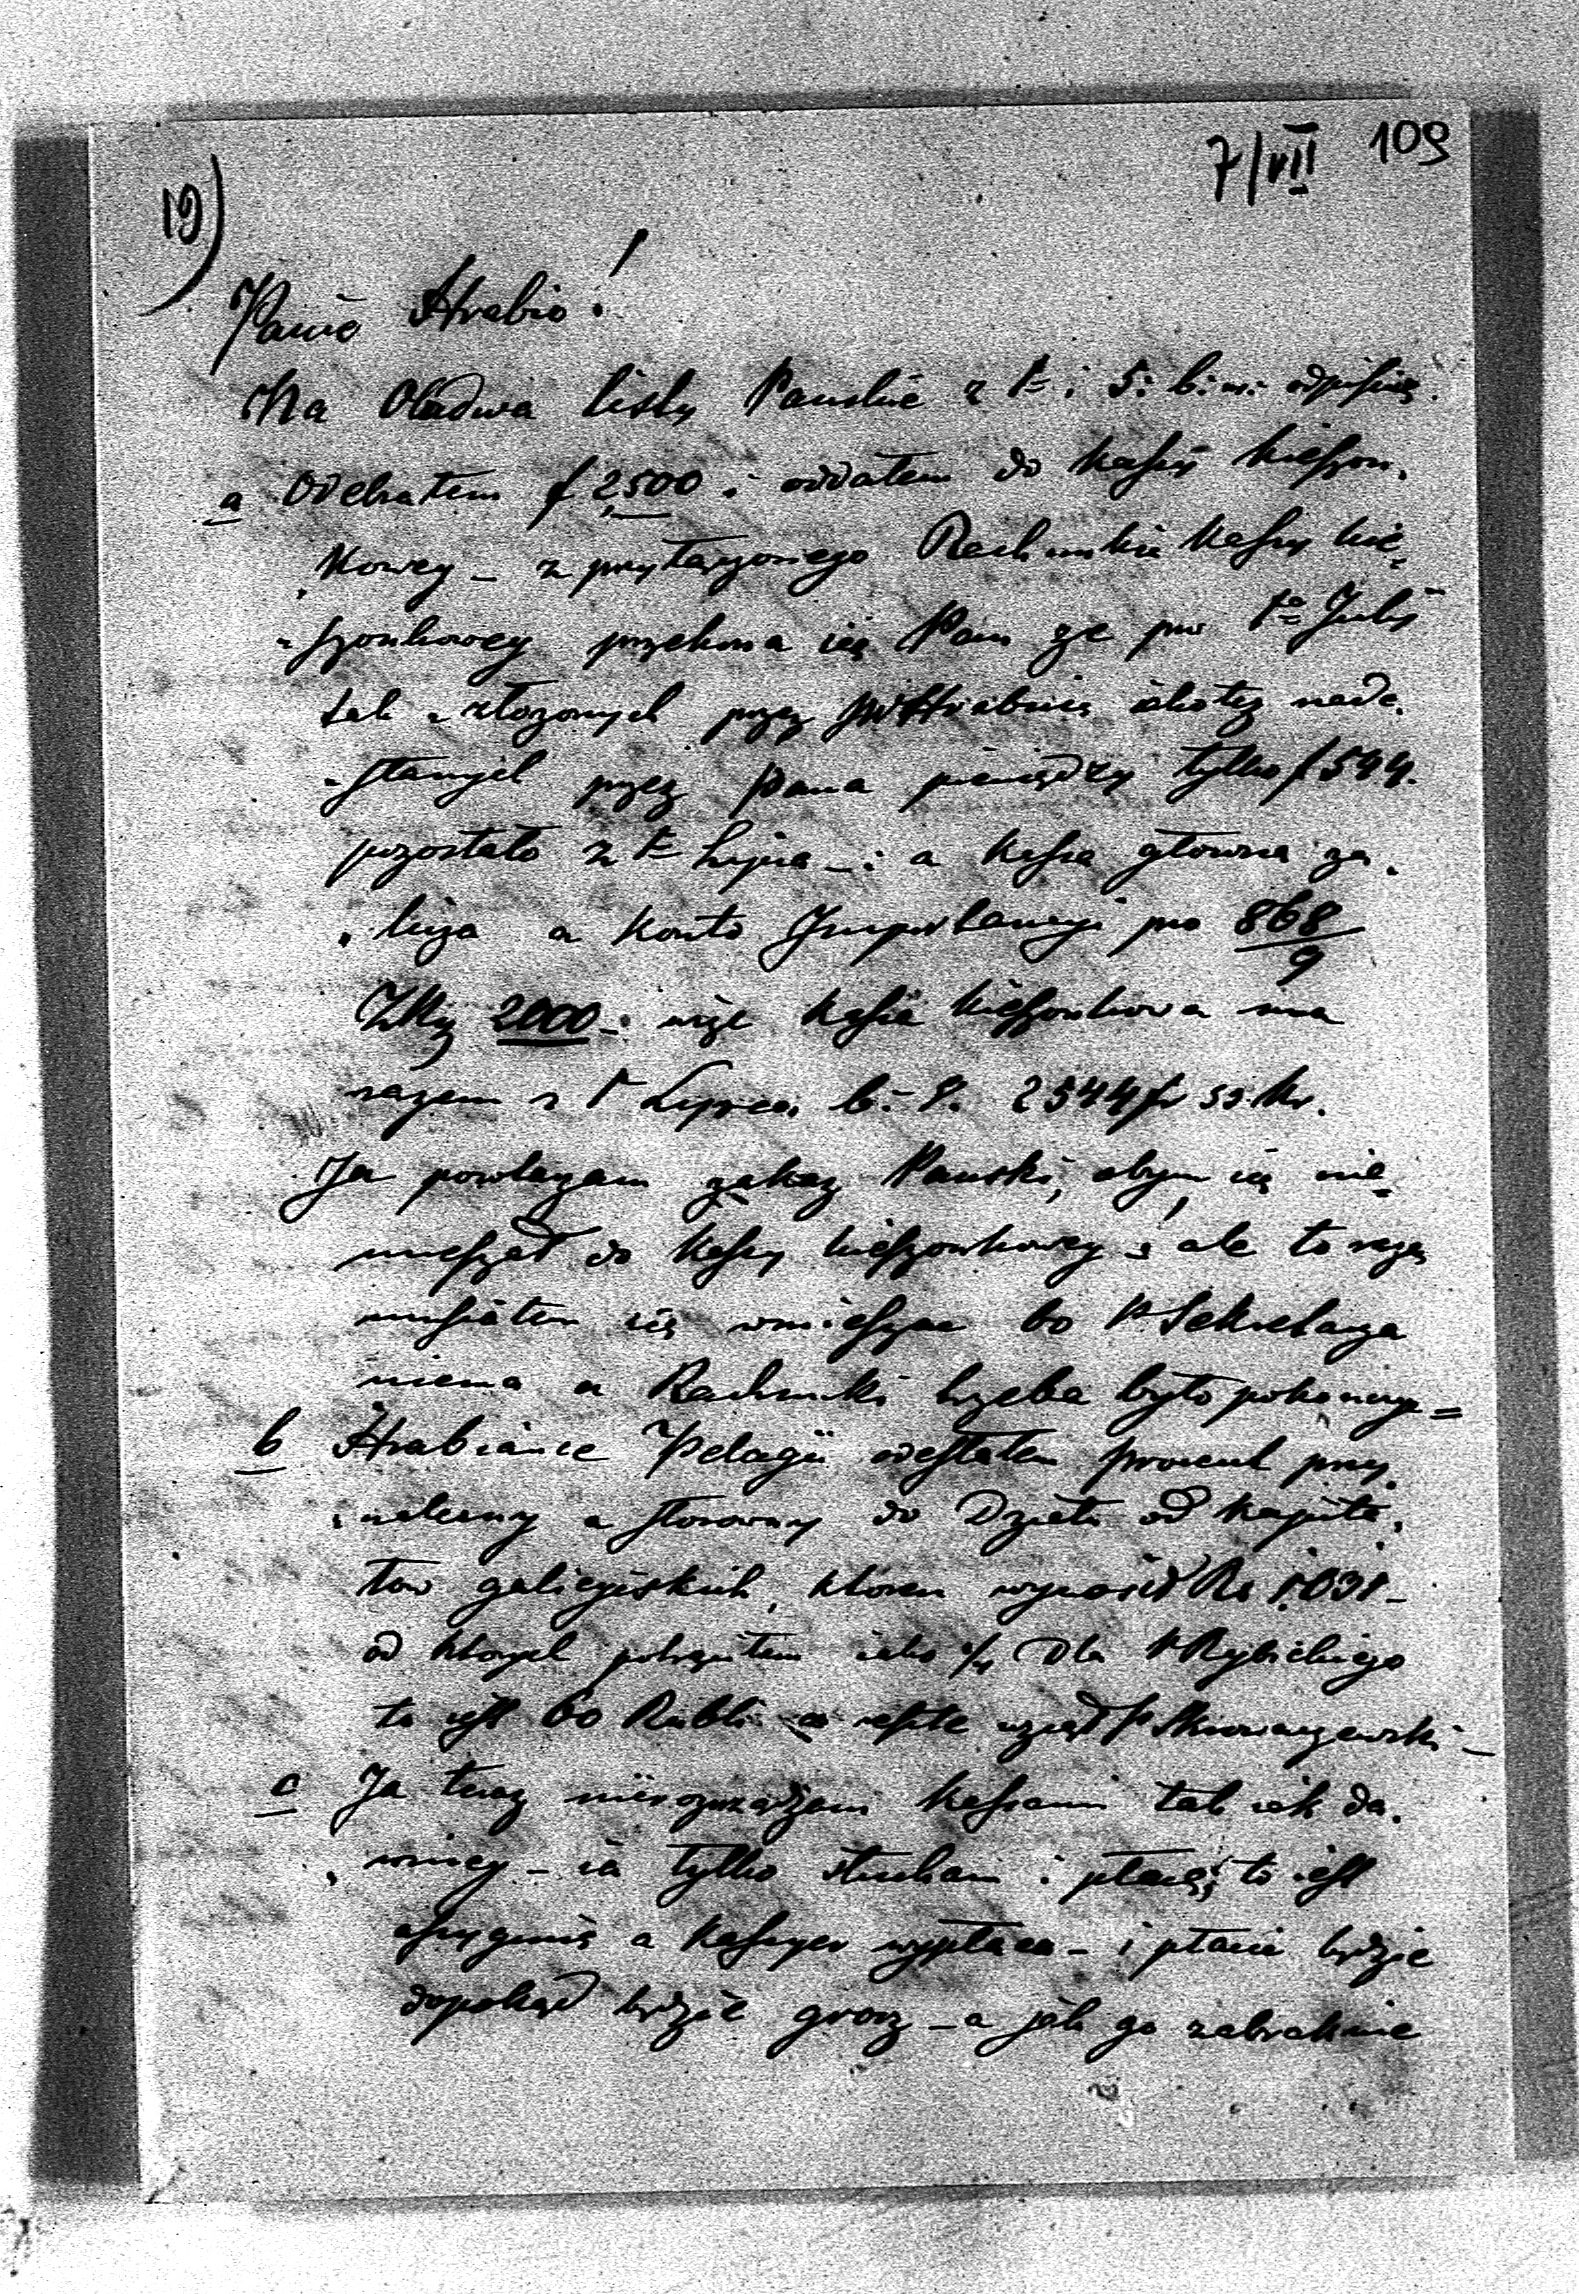 7/VII 109
19)
Panie Hrabio!
Na Obadwa listy Pańskie z 1= i 5: b: m: odpisuię.
a Odebrałem f 2,500 i oddałem do Kassy kieszon„
„kowey – z przyłączonego Rachunku Kassy kie„
„szonkowey przekona się Pan że pro 1a July
tak złożonych przez JW Hrabinię iakoteż nade„
„słanych przez Pana pieniędzy tylko f 544.
pozostało z 1= Lipca – : a Kassa głowna za„
„licza a Konto pro 868/9
2000 – więc Kassa kieszonkowa ma
razem z 1 Lipca b: r. 2544 f 55 kr.
Ja powtarzam zakaz Pański, abym się nie„
mieszał do Kassy kieszonkowey , ale to razą
musiałem się wmieszac bo P. Sekretarza
niema a Rachunki trzeba było =
b Hrabiance Pelagii odesłałem procent przy„
„należny a stosowny do Działu od kapita„
łow galicyiskich, ktoren wynosił Rs 1.031 –
od ktorych potrąciłem iako dla P Rybickiego
to iest 60 Rubli a resztę wziął P –
c Ja teraz nierozrządzam Kassami tak iak da„
„wniey – ia tylko słucham i płacę; to iest
assygnię a Kassyer wypłaca – i płacić będzie
dopokąd będzie grosz – a jak go zabraknie